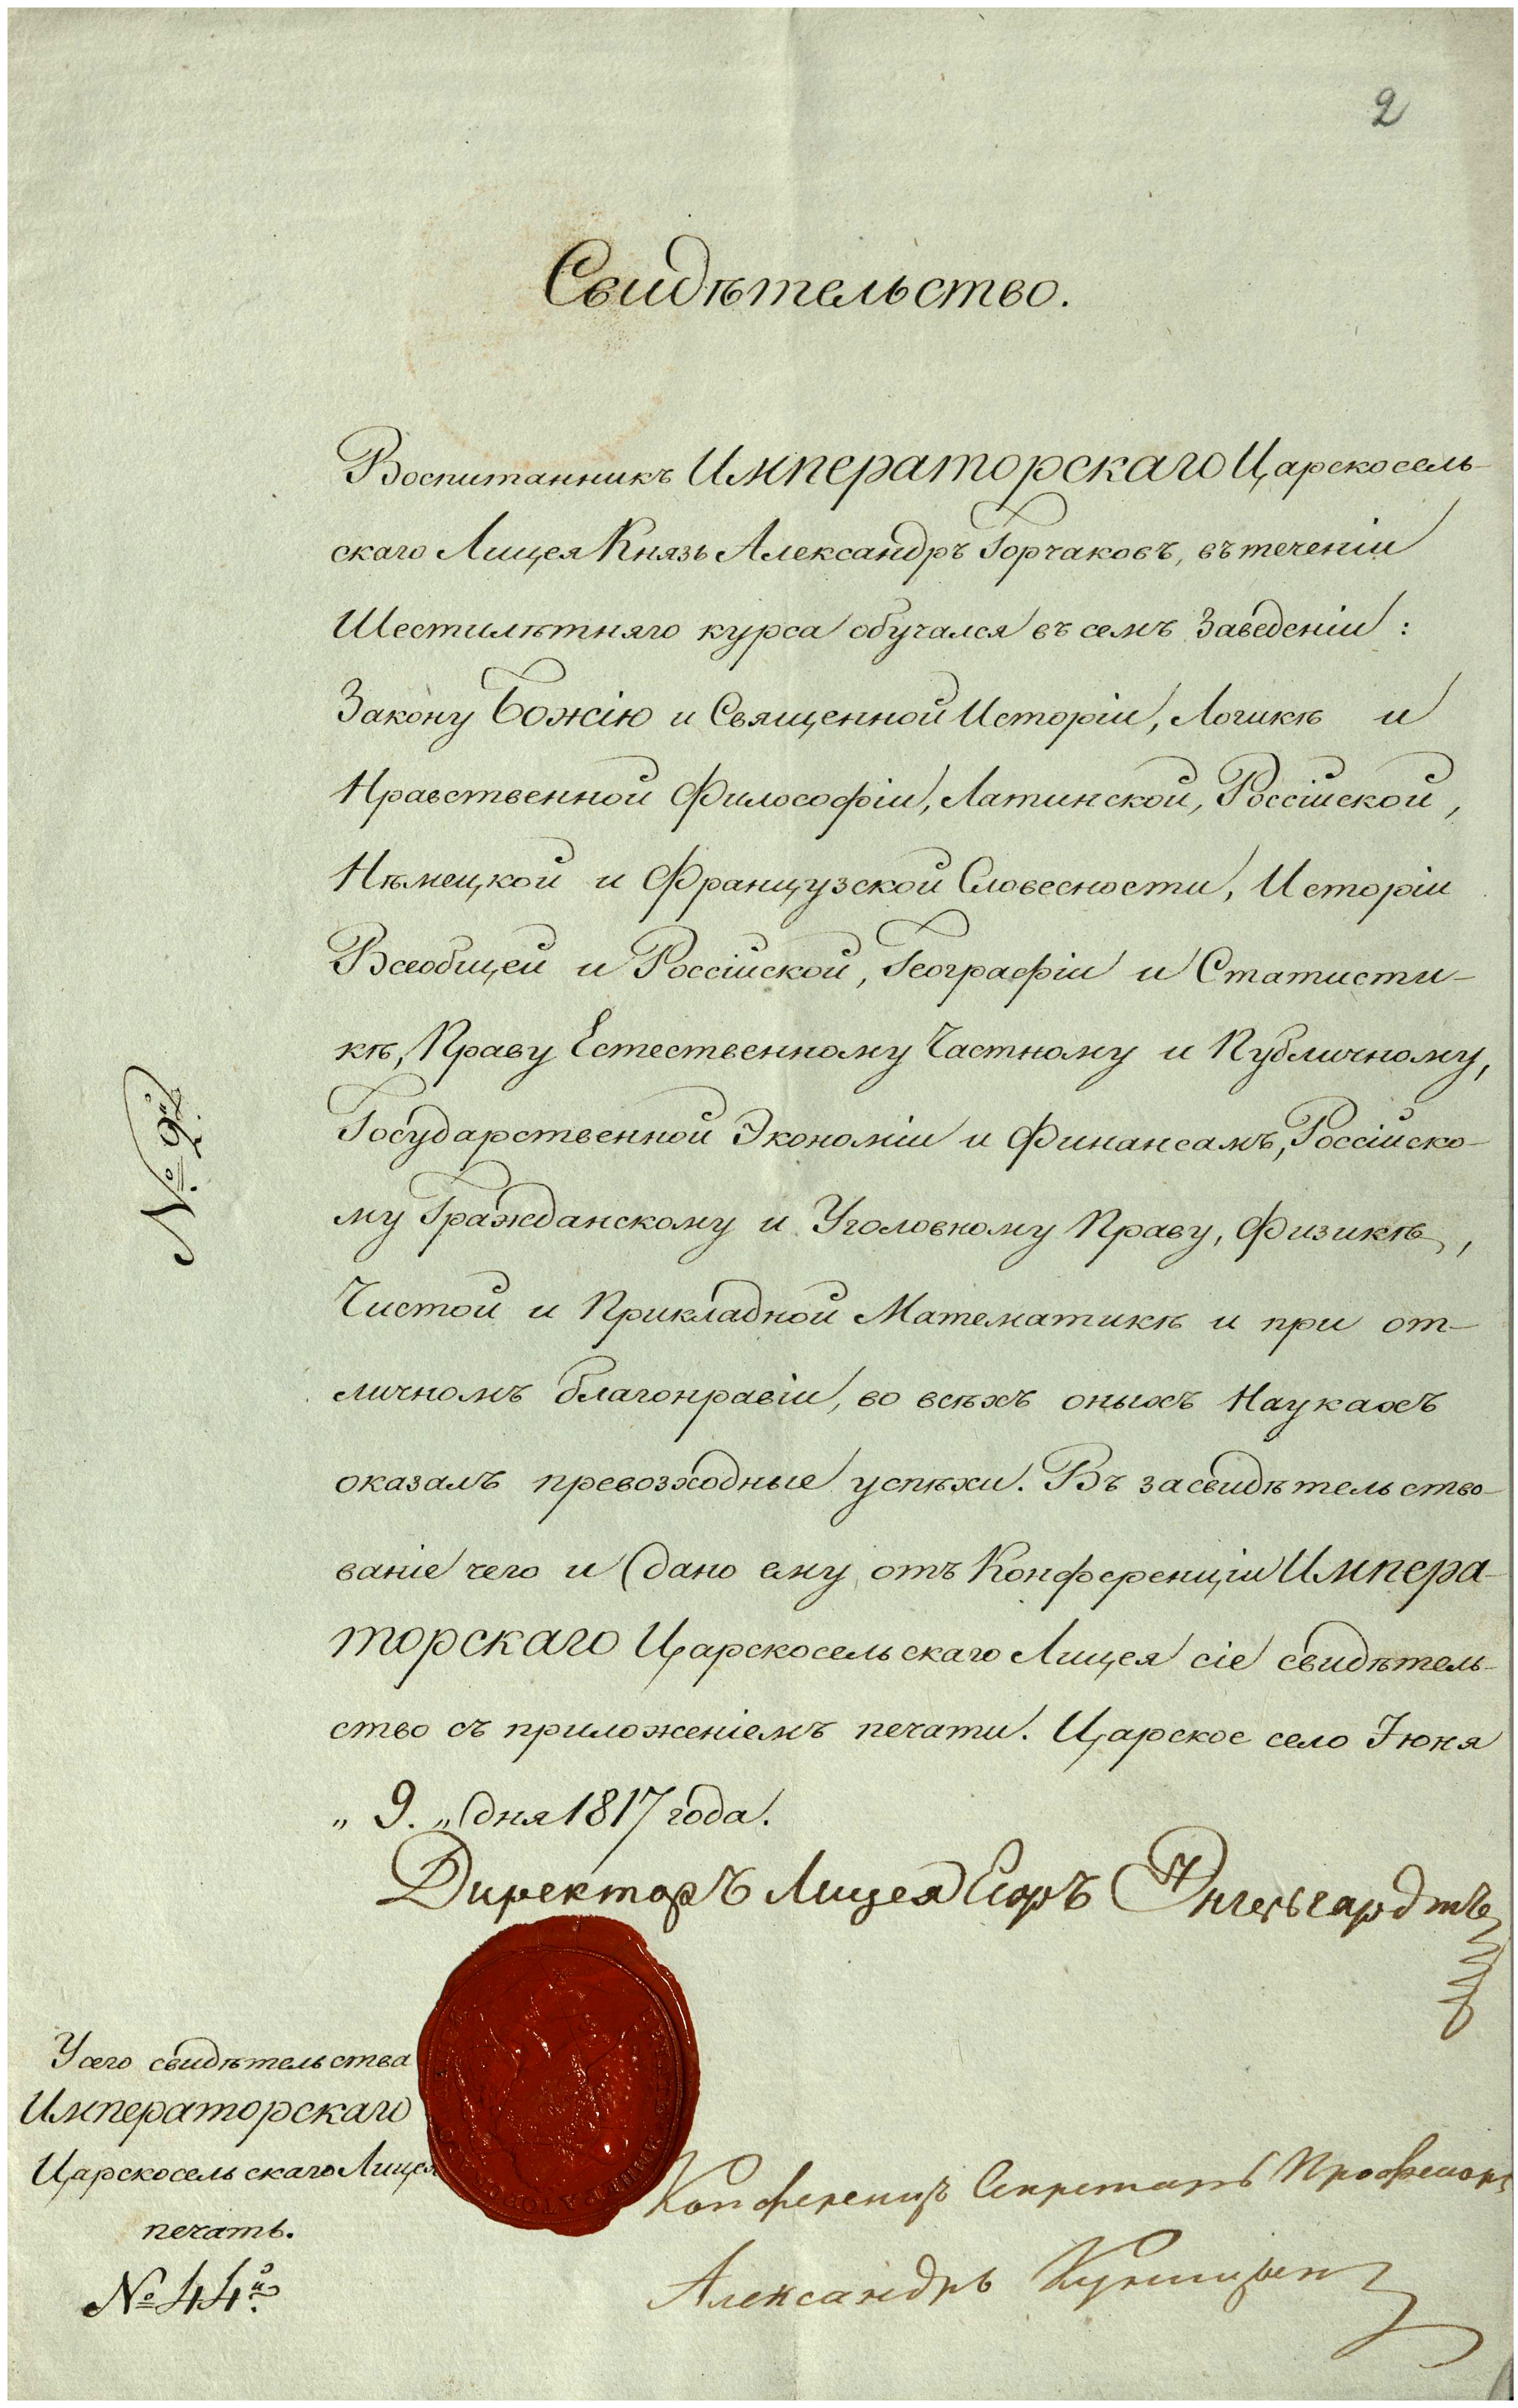 2
Свидѣтельство.
Воспитанникъ Императорскаго Царскосель-
скаго Лицея Князь Александръ Горчаковъ, въ теченіи
Шестилѣтняго курса обучался въ семъ Заведеніи:
Закону Божію и Священной Исторіи, Логикѣ и
Нравственной Философіи, Латинской, Россійской,
Нѣмецкой и Французской Словесности, Исторіи
Всеобщей и Россійской, Географіи и Статисти-
кѣ, Праву Естественному Частному и Публичному,
Государственной Экономіи и Финансамъ, Россійско-
му Гражданскому и Уголовному Праву, Физикѣ,
Чистой и Прикладной Математикѣ и при от-
личномъ благонравіи, во всѣхъ оныхъ Наукахъ
оказалъ превозходные успѣхи. Въ засвидѣтельство-
ваніе чего и дано ему отъ Конференціи Импера-
торскаго Царскосельскаго Лицея сіе свидѣтель-
ство съ приложеніемъ печати. Царское село Іюня
„ 9. „ дня 1817 года.
№ 2й
Директоръ Лицея Егоръ Энгельгардтъ
У сего свидѣтельства
Императорскаго
Царскосельскаго Лицея
печать.
№ 44й
Конференцъ Секретарь Профессоръ
Александръ Куницынъ